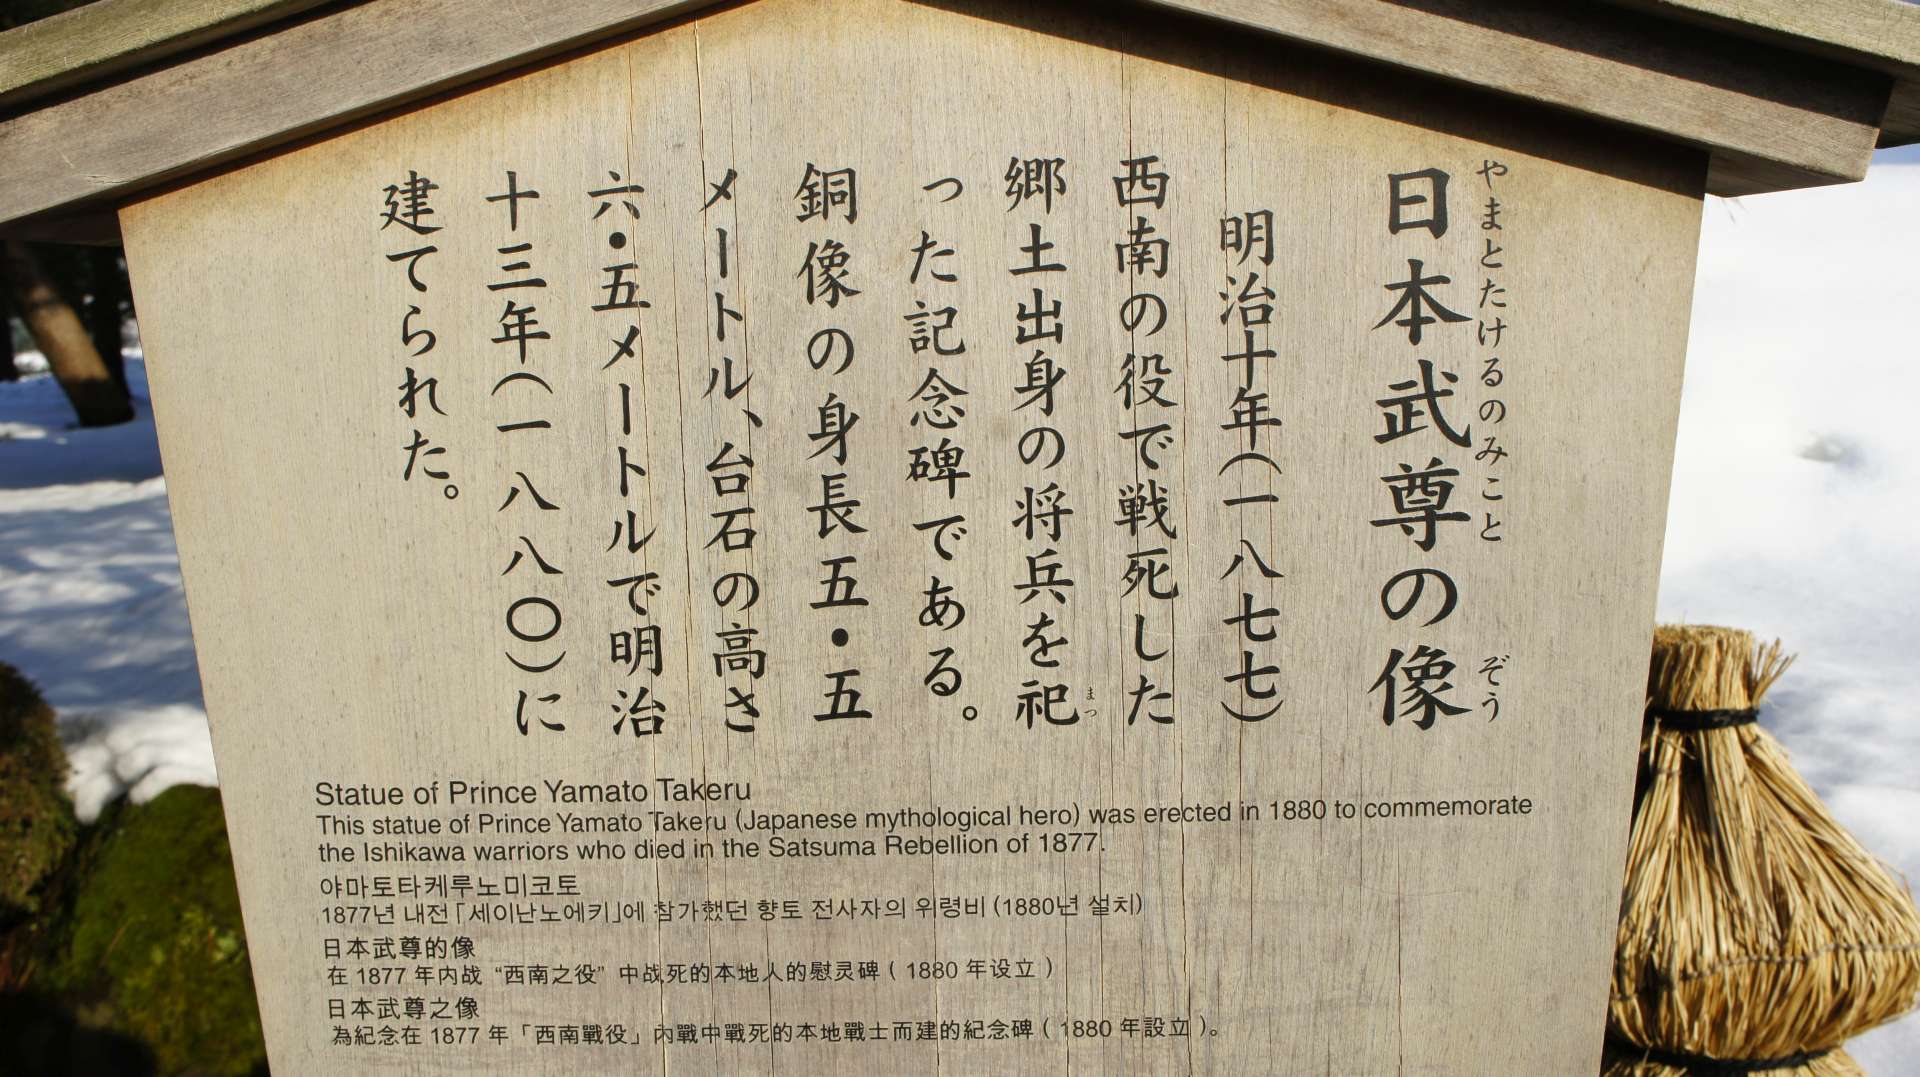 日本武尊の像
やまとたけるのみこと ぞう
明治十年(一八七七)
西南の役で戦死した
郷土出身の将兵を祀
まつ
った記念碑である。
銅像の身長五・五
メートル、台石の高さ
六・五メートルで明治
十三年(一八八〇)に
建てられた。
Statue of Prince Yamato Takeru
This statue of Prince Yamato Takeru (Japanese mythological hero) was erected in 1880 to commemorate
the Ishikawa warriors who died in the Satsuma Rebellion of 1877.
야마토타케루노미코토
1877년 내전「세이난노에키」에 참가했던 향토 전사자의 위령비 (1880년 설치)
日本武尊的像
在 1877 年内战 “西南之役” 中战死的本地人的慰灵碑 ( 1880 年设立 )
日本武尊之像
為紀念在 1877 年「西南戰役」內戰中戰死的本地戰士而建的紀念碑 ( 1880 年設立 )。